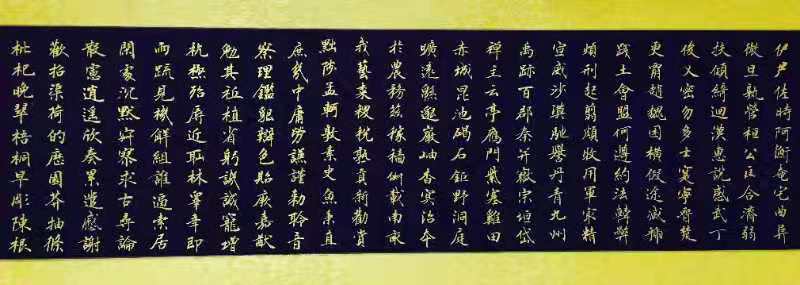 伊尹佐時阿衡奄宅曲阜
微旦孰營桓公匡合濟弱
扶傾綺迴漢惠說感武丁
俊乂密勿多士寔寧晉楚
更霸趙魏困橫假途滅虢
踐土會盟何遵約法韓弊
煩刑起翦頗牧用軍最精
宣威沙漠馳譽丹青九州
禹跡百郡秦并嶽宗恒岱
禪主云亭雁門紫塞雞田
赤城昆池碣石鉅野洞庭
曠遠緜邈巖岫杳冥治本
於農務茲稼穡俶載南畝
我藝黍稷稅熟貢新勸賞
黜陟孟軻敦素史魚秉直
庶幾中庸勞謙謹勅聆音
察理鑑貌辨色貽厥嘉猷
勉其祗植省躬譏誡寵增
抗極殆辱近恥林皋幸即
兩疏見機解組誰逼索居
閑處沉默寂寥求古尋論
散慮逍遙欣奏累遣慼謝
歡招渠荷的歷園莽抽條
枇杷晚翠梧桐早彫陳根